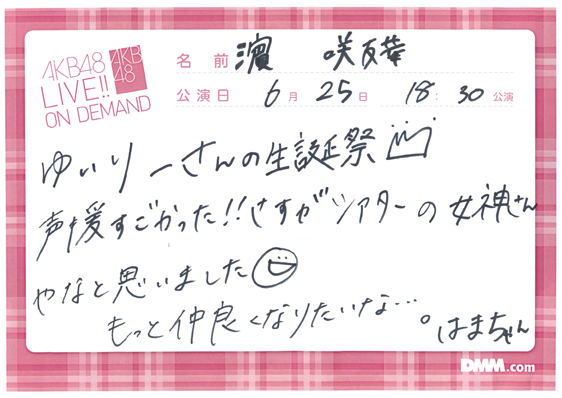 AKB48
LIVE!!
ON DEMAND
AKB
48
名前 濵 咲友菜
公演日 6月25日 18:30公演
ゆいりーさんの生誕祭
声援すごかった!!さすがシアターの女神さん
やなと思いました
もっと仲良くなりたいな…
。はまちゃん
DMM.com